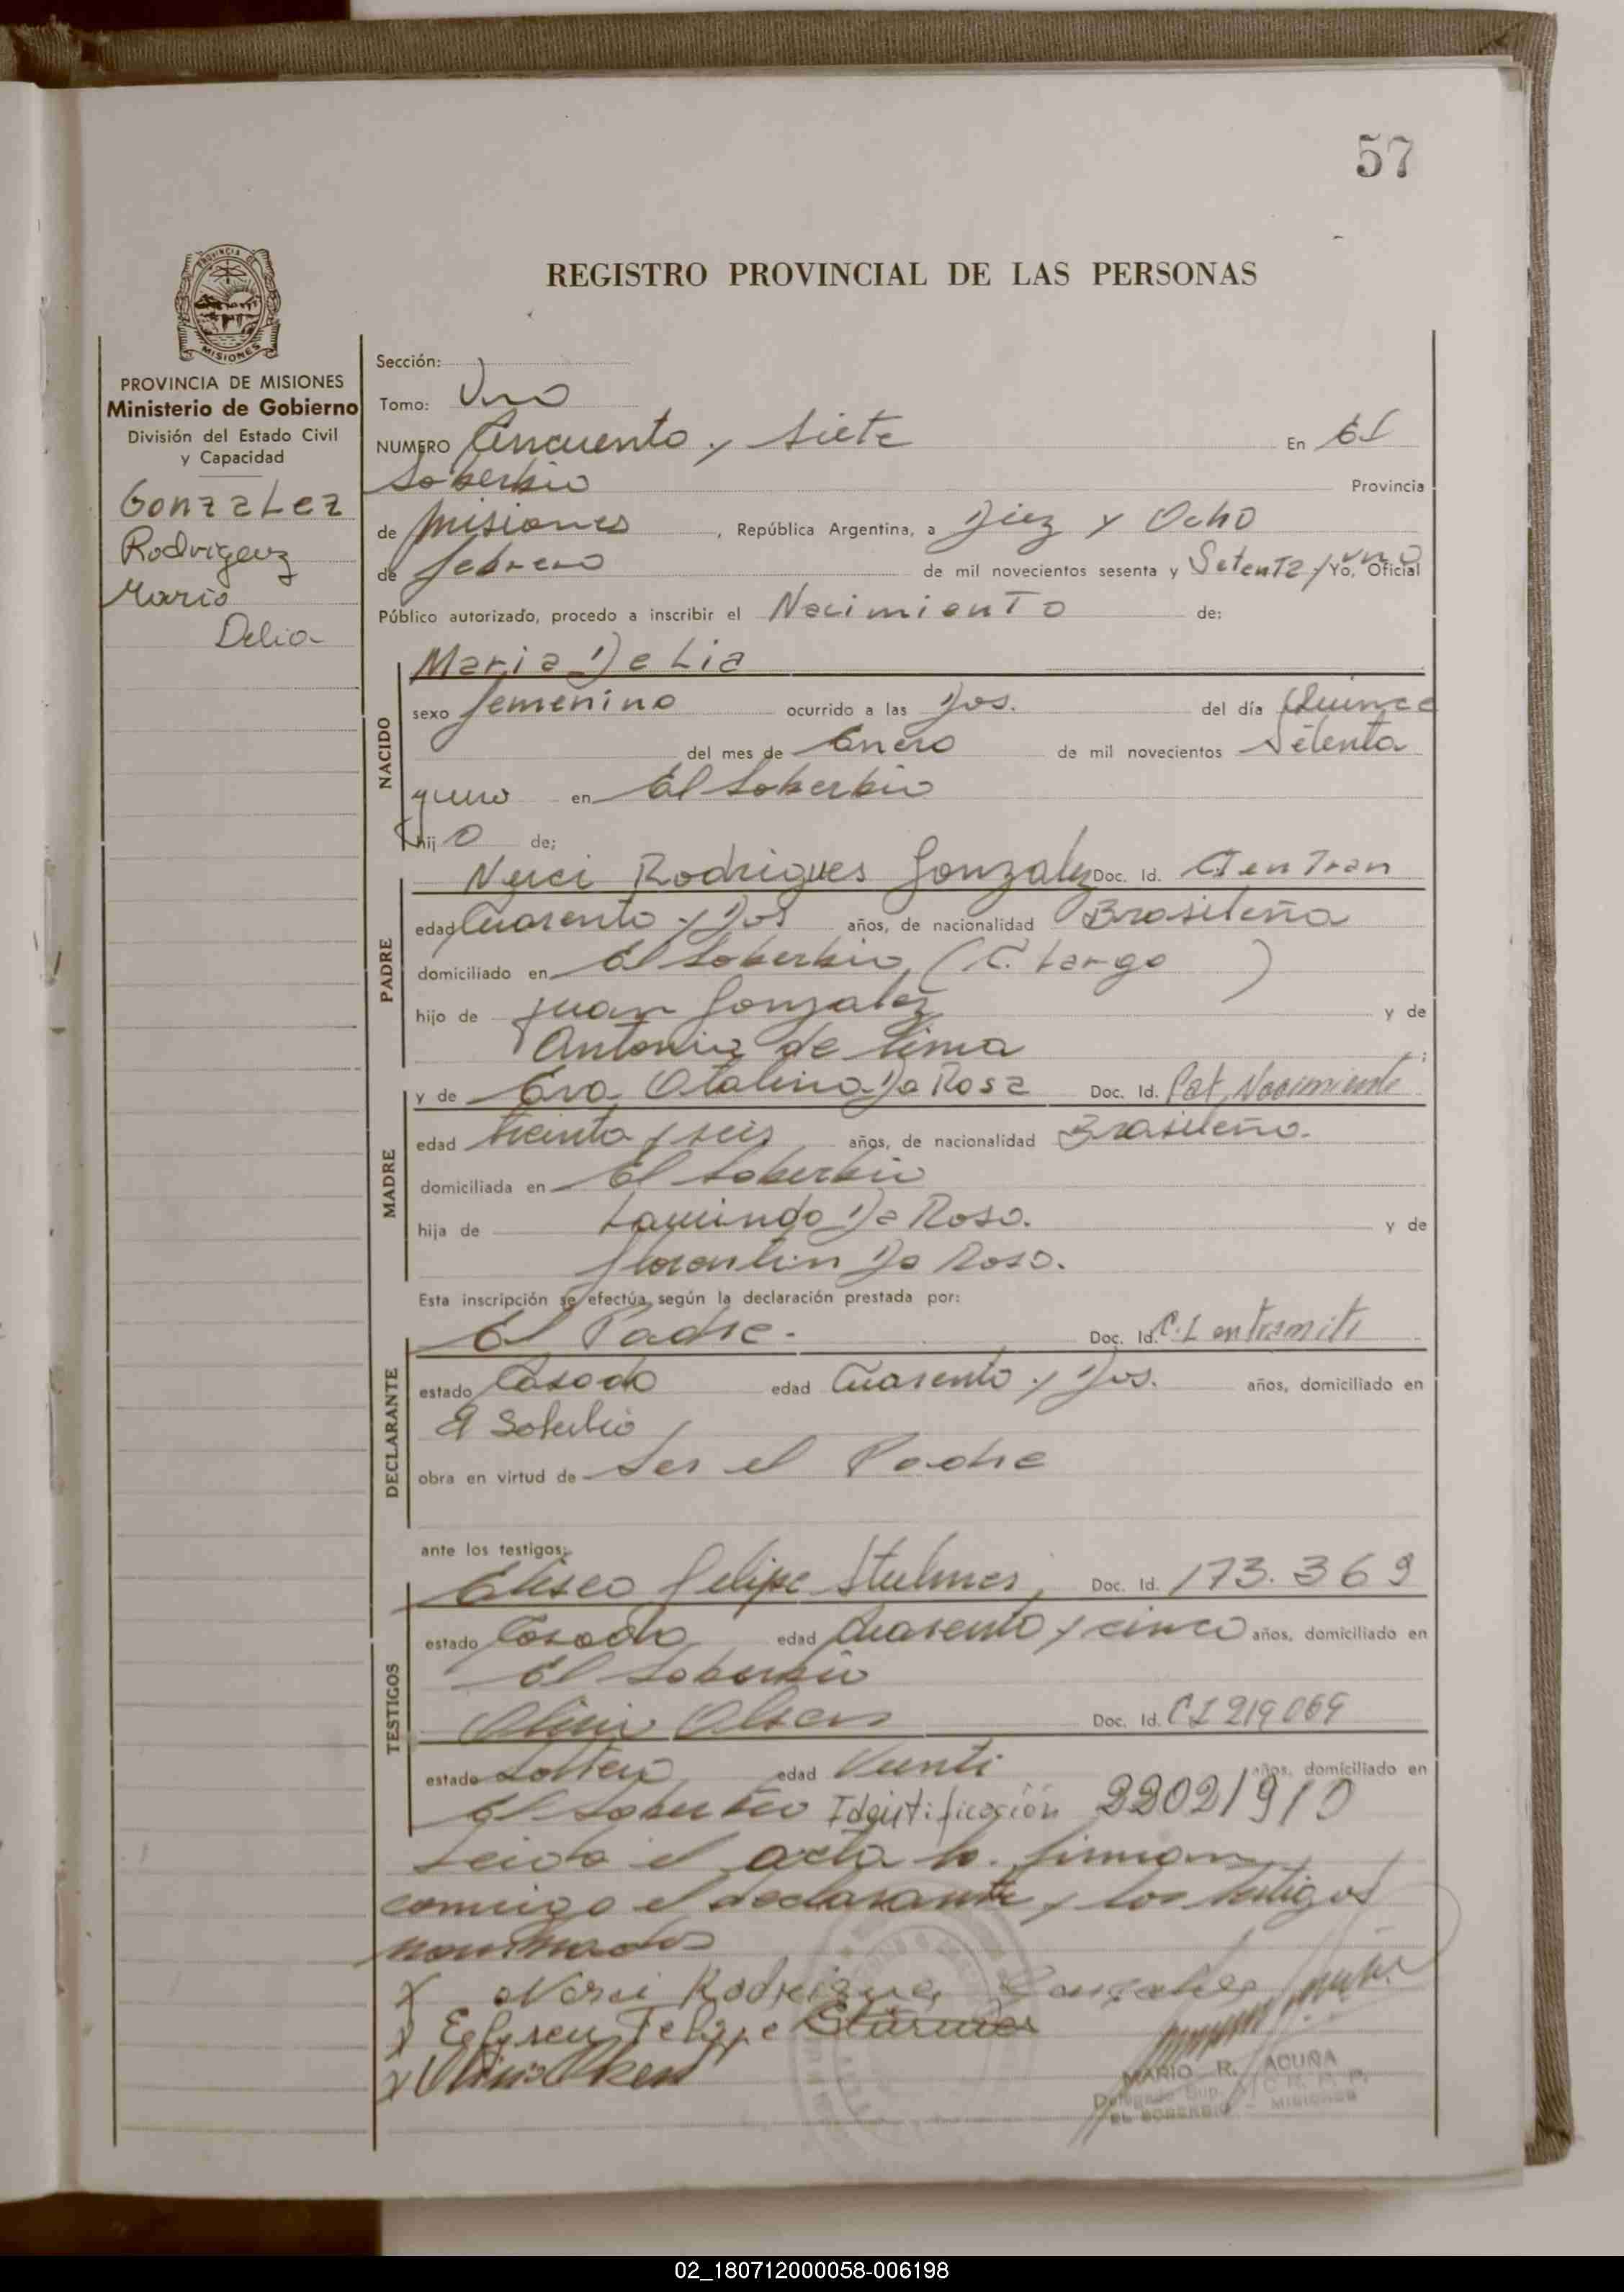 57
REGISTRO PROVINCIAL DE LAS PERSONAS
PROVINCIA DE
MISIONES
PROVINCIA DE MISIONES
Ministerio de Gobierno
División del Estado Civil
y Capacidad
Gonzalez
Rodriguez
Maria
Delia
Sección:
Tomo: Uno
NUMERO Cincuenta y siete En El
Soberbio Provincia
de Misiones, República Argentina, a Diez y Ocho
de febrero de mil novecientos sesenta y Setenta y uno Yo, Oficial
Público autorizado, procedo a inscribir el Nacimiento de:
NACIDO
Maria Delia
sexo femenino ocurrido a las Dos. del día Quince
del mes de Enero de mil novecientos Setenta
y uno en El Soberbio
hij o de;
PADRE
Nerci Rodrigues Gonzalez Doc. Id. CI en Tran
edad Cuarenta y Dos años, de nacionalidad Brasileña
domiciliado en El Soberbio, (C. Largo )
hijo de Juan Gonzalez y de
Antonia de Lima ;
MADRE
y de Eva Otalina Da Rosa Doc. Id. Nacimiento
edad treinta y seis años, de nacionalidad Brasileña.
domiciliada en El Soberbio
hija de Da Rosa. y de
Da Rosa.
Esta inscripción se efectúa según la declaración prestada por:
DECLARANTE
El Padre. Doc. Id. C.I en tramite
estado Casado edad Cuarenta y Dos. años, domiciliado en
El Soberbio
obra en virtud de Ser el Padre
ante los testigos:
TESTIGOS
Eliseo Felipe Doc. Id. 173.369
estado Casado edad Cuarenta y cinco años, domiciliado en
El Soberbio
Olsen Doc. Id. CI 219069
estado Soltero edad Veinti años, domiciliado en
El Soberbio Identificación
Leida el acta la firman
conmigo el declarante y los testigos
nominados
x Nersi Rodrigues Gonzales
x Felipe
x Olsen
MARIO R. ACUÑA
EL SOBERBIO - MISIONES
02_180712000058-006198